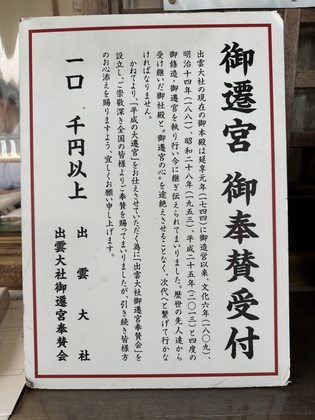 御遷宮 御奉賛受付
出雲大社の現在の御本殿は延享元年(一七四四)に御造営以来、文化六年(一八〇九)、
明治十四年(一八八一)、昭和二十八年(一九五三)、平成二十五年(二〇一三)と四度の
御修造・御遷宮を執り行い今に継ぎ伝えられてまいりました。歴世の先人達から
受け継いだ御社殿と〝御遷宮の心〟を途絶えさせることなく、次代へと繋げて行かな
ければなりません。
かねてより、「平成の大遷宮」をお仕えさせていただく為に「出雲大社御遷宮奉賛会」を
設立し、ご崇敬深き全国の皆様よりご奉賛を賜ってまいりましたが、引き続き皆様方
のお心添えを賜りますよう、宜しくお願い申し上げます。
一口 千円以上
出雲大社
出雲大社御遷宮奉賛会